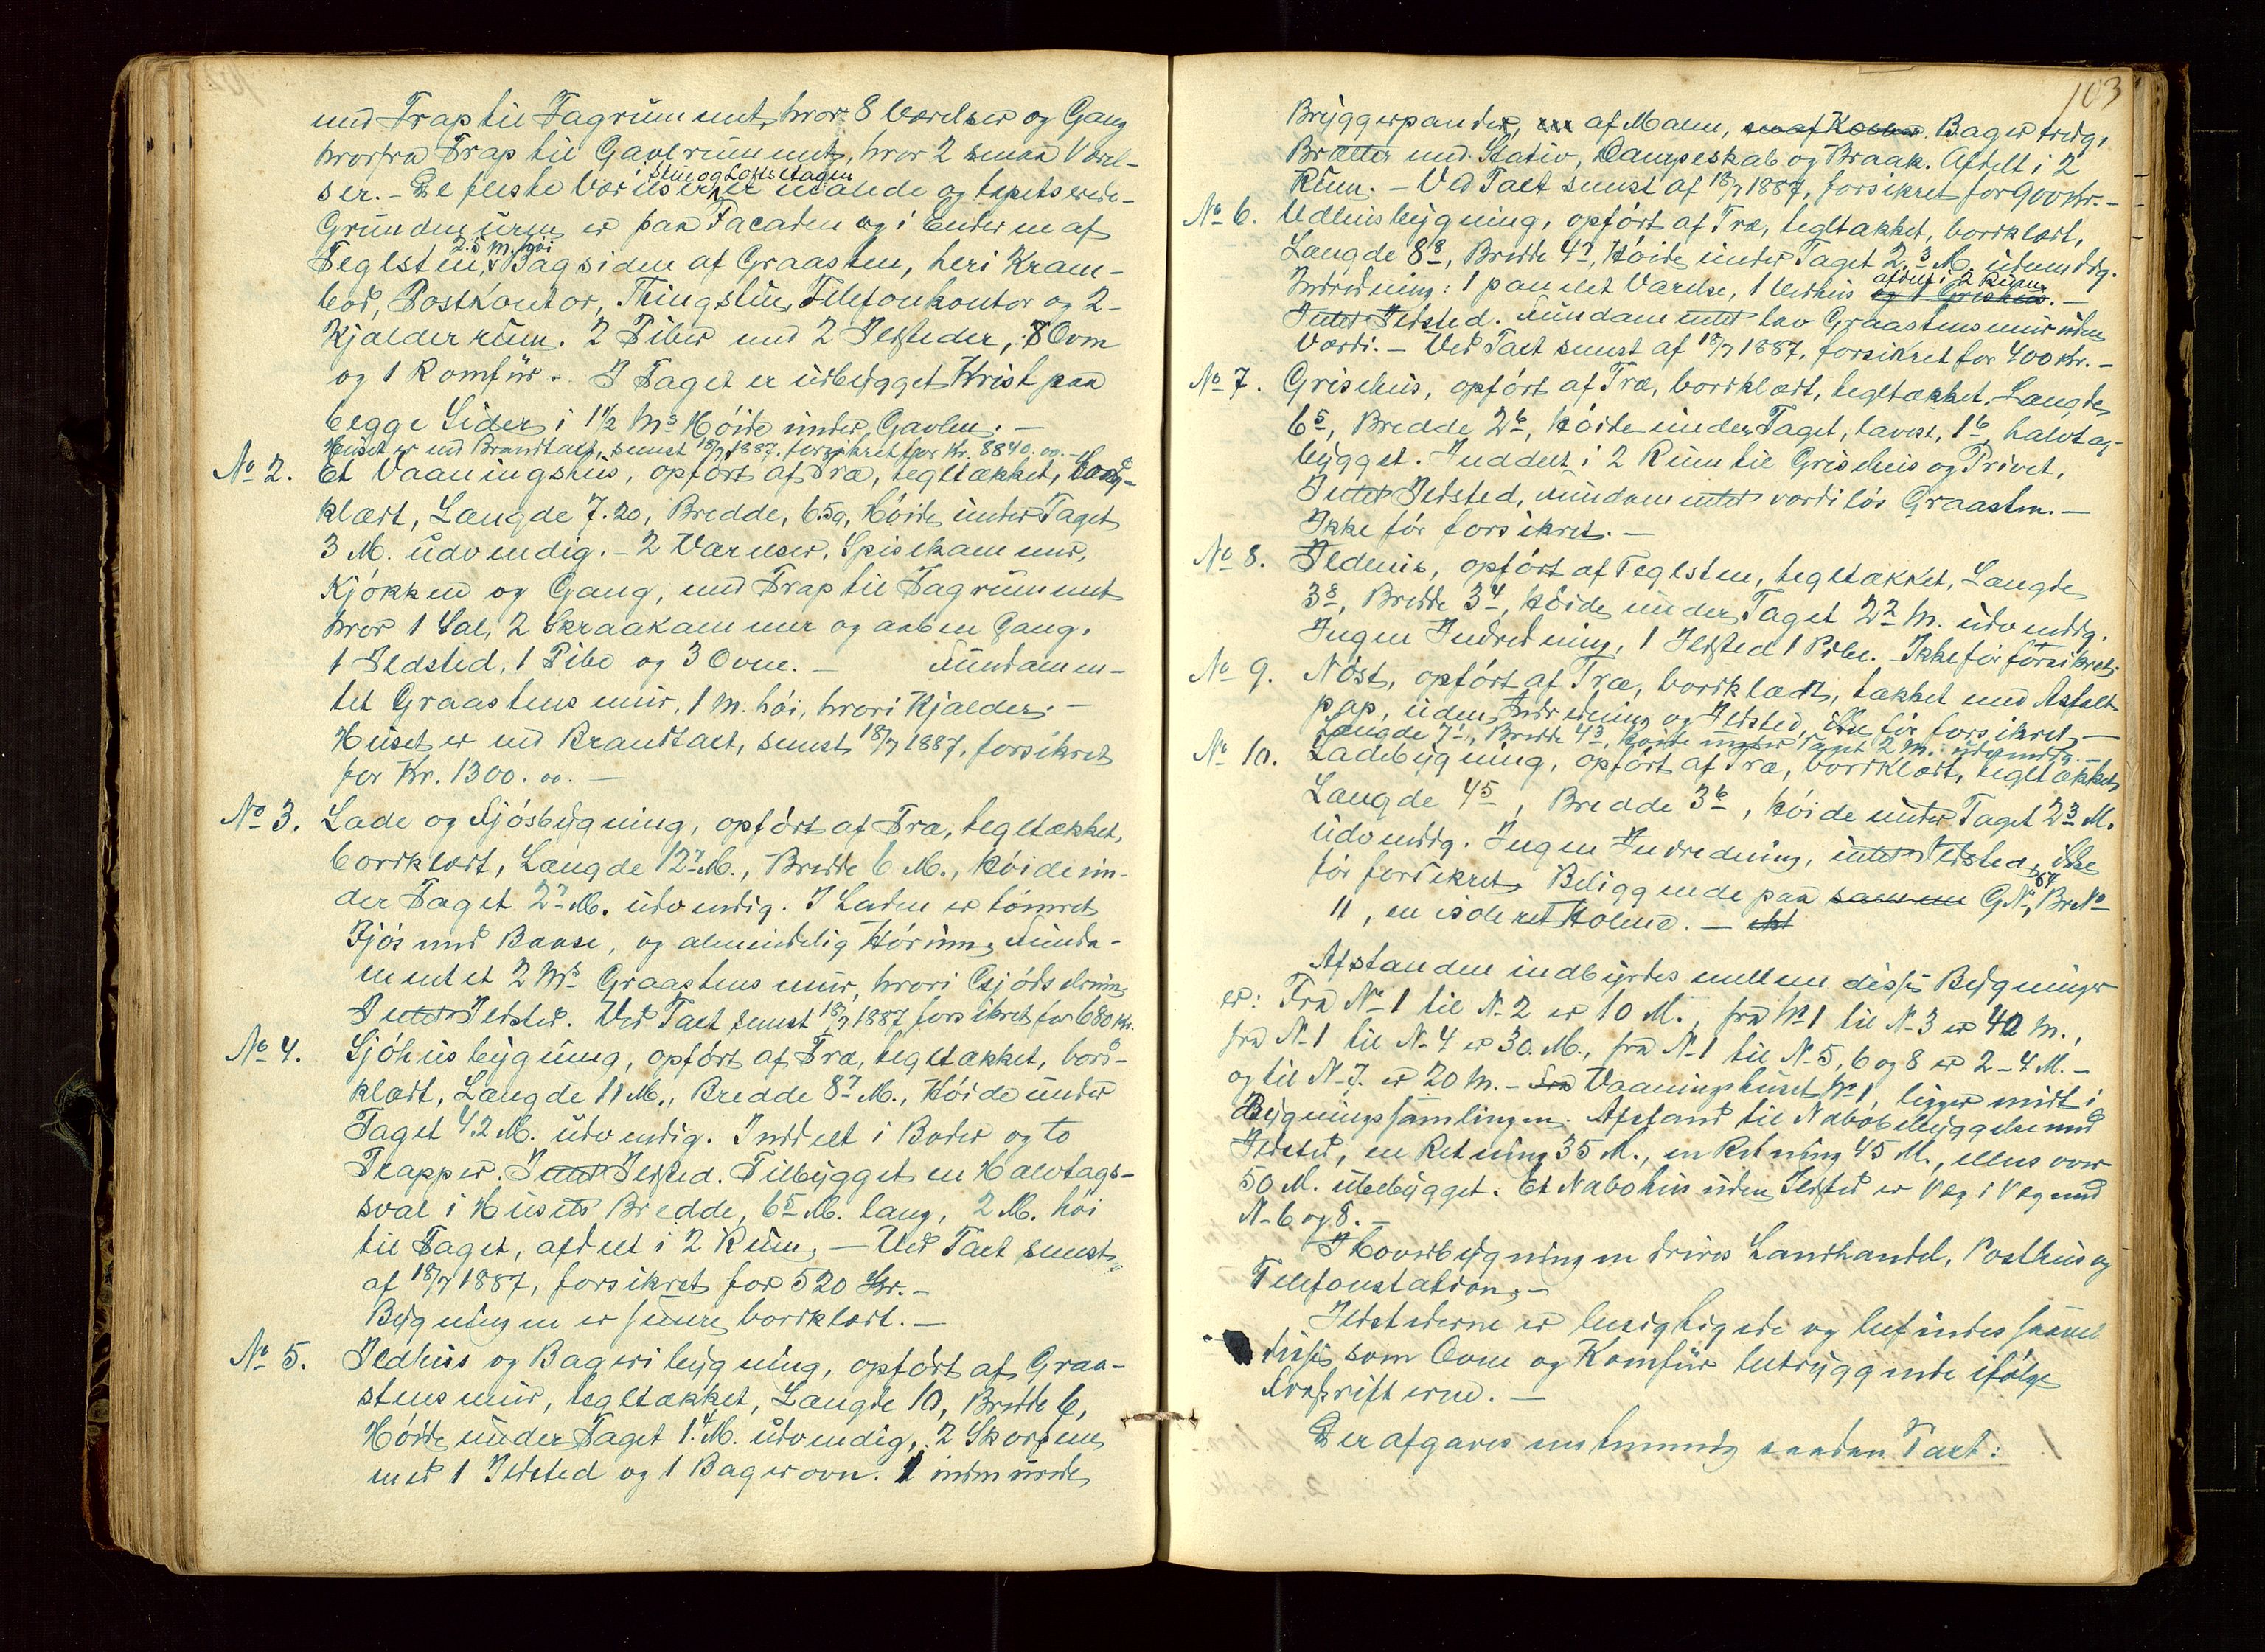 med Trap til Tagrummet, hvor 8 Værelser og Gang
hvorfra Trap til Gavlrummet, hvor 2 smaa Værel-
Stue og Loftsetagen
ser. - De fleste Værelser er malede og tapetserede -
Grundmuren er paa Facaden og i Enderne af
2.5 M. høi
Teglsten, Bagsiden af Graasten, heri Kram-
bod, Postkontor, Thingstue, Telefonkontor og 2 -
Kjælderrum. 2 Piber med 2 Ildsteder, 8 Ovne
og 1 Komfur. I Taget er udbygget Kvist paa
begge Sider, i 1½ Ms Høide under Gavlen. -
Huset er ved Brandtaxt, senest 18/7 1887, forsikret for Kr. 8840.00. -
No 2. Et Vaaningshus, opført af Træ, tegltækket, bord-
klædt, Længde 7.20, Bredde, 6.50, Høide under Taget
3 M. udvendig. - 2 Værelser, Spisekammer,
Kjøkken og Gang, med Trap til Tagrummet
hvor 1 Sal, 2 Skraakammer og aaben Gang.
1 Ildsted, 1 Pibe og 3 Ovne. - Fundamen-
tet Graastensmur, 1 M. høi, hvori Kjælder. -
Huset er ved Brandtaxt, senest 18/7 1887, forsikret
for Kr. 1300.00. -
No 3. Lade og Fjøsbygning, opført af Træ, tegltækket,
bordklædt, Længde 12.7 M., Bredde 6 M., Høide un-
der Taget 2.7 M. udvendig. I Laden er tømret
Fjøs med Baase, og almindelig Hørum, Funda-
mentet 2 Ms Graastensmur, hvori Gjødselrum,
Intet Ildsted. Ved Taxt senest 18/7 1887 forsikret for 680 Kr.
No 4. Sjøhusbygning, opført af Træ, tegltækket, bord-
klædt, Længde 11 M., Bredde 8.7 M., Høide under
Taget 4.2 M. udvendig. Inddelt i Boder og to
Trapper. Intet Ildsted. Tilbygget en Halvtags-
sval i Husets Bredde, 6.5 M. lang, 2 M. høi
til Taget, afdelt i 2 Rum, - Ved Taxt senest
af 18/7 1887, forsikret for 520 Kr. -
Bygningen er bordklædt. -
No 5. Ildhus og Bageribygning, opført af Graa-
stensmur, tegltækket, Længde 10, Bredde 6,
Høide under Taget 1.4 M. udvendig, 2 Skorstene
med 1 Ildsted og 1 Bagerovn. 1 indmurede
103
Bryggerpande, af Malm, Bagertrug,
Brætter med Stativ, Dampeskab og Braak. Afdelt i 2
Rum. - Ved Taxt senest af 18/7 1887, forsikret for 900 Kr. -
No 6. Udhusbygning, opført af Træ, tegltækket, bordklædt,
Længde 8.8, Bredde 4.7, Høide under Taget 2.3 M. udvendig.
afdelt i 2 Rum
Indredning: 1 panelet Værelse, 1 Vedhus og 1 Grishus. -
Intet Ildsted. Fundamentet lav Graastensmur uden
Værdi. - Ved Taxt senest af 18/7 1887, forsikret for 400 Kr. -
No 7. Grisehus, opført af Træ, bordklædt, tegltækket. Længde
6.5, Bredde 2.6, Høide under Taget, lavest, 1.6, halvtag-
bygget. Inddelt i 2 Rum til Grisehus og Privet,
Intet Ildsted, Fundamentet værdiløs Graasten. -
Ikke før forsikret. -
No 8. Ildhus, opført af Teglsten, tegltækket, Længde
3.8, Bredde 3.4, Høide under Taget 2.2 M. udvendig.
Ingen Indredning, 1 Ildsted 1 Pibe. Ikke før forsikret.
No 9. Nøst, opført af Træ, bordklædt, tækket med Asfalt
pap, uden Indredning og Ildsted, ikke før forsikret, -
Længde 7.1, Bredde 4.3, Høide under Taget 2 M. udvendig. -
No 10. Ladebygning, opført af Træ, bordklædt, tegltækket,
Længde 4.5, Bredde 3.6, Høide under Taget 2.3 M.
udvendig. Ingen Indredning, intet Ildsted, ikke
før forsikret, Beliggende paa samme G.No 64, Br.No
11, en isoleret Holme. -
Afstanden indbyrdes mellem disse Bygninger
er: Fra No 1 til No 2 er 10 M., fra No 1 til No 3 er 42 M.,
fra No 1 til No 4 er 30 M., fra No 1 til No 5, 6 og 8 er 2 - 4 M. -
og til No 7. er 20 M. - Vaaningshuset No 1, ligger midt i
Bygningssamlingen. Afstand til Nabobebyggelse med
Ildsted, en Retning 35 M., en Retning 45 M., ellers over
50 M. ubebygget. Et Nabohus uden Ildsted er Væg i Væg med
No 6 og 8. -
I Hovedbygningen drives Landhandel, Posthus og
Telefonstation. -
Ildstederne er besigtigede og befindes saavel
disse som Ovne og Komfur betryggende ifølge
Forskrifterne. -
Der afgaves enstemmig saadan Taxt: